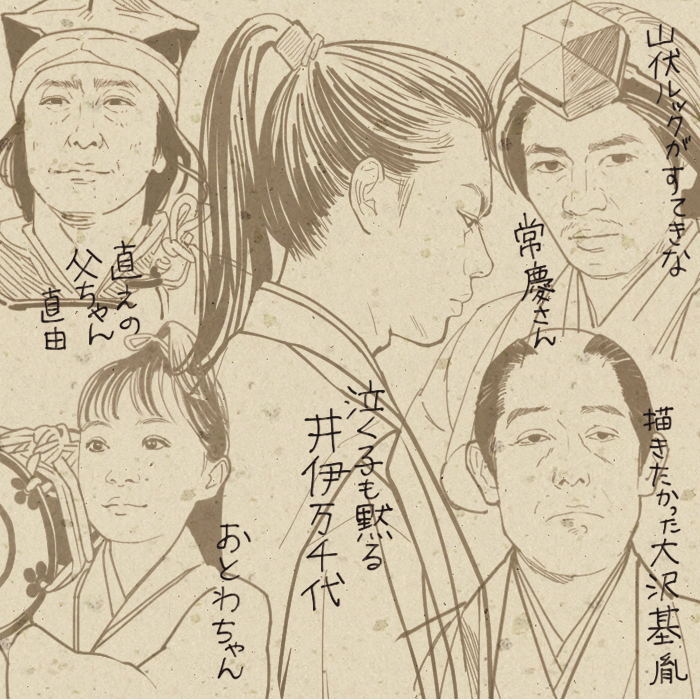 山伏ルックがすてきな
常慶さん
直之の
父ちゃん
直由
泣く子も黙る
井伊万千代
描きたかった大沢基胤
おとわちゃん